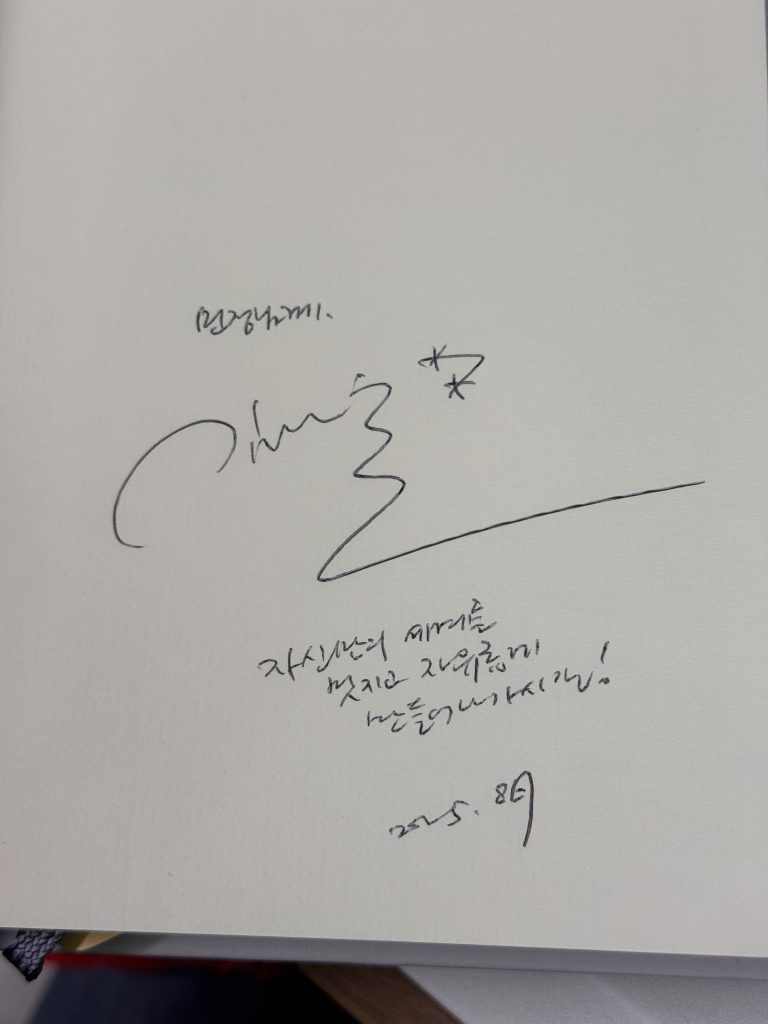 민정님께.
자신만의 세계를
멋지고 자유롭게
만들어나가시길!
2025. 8月